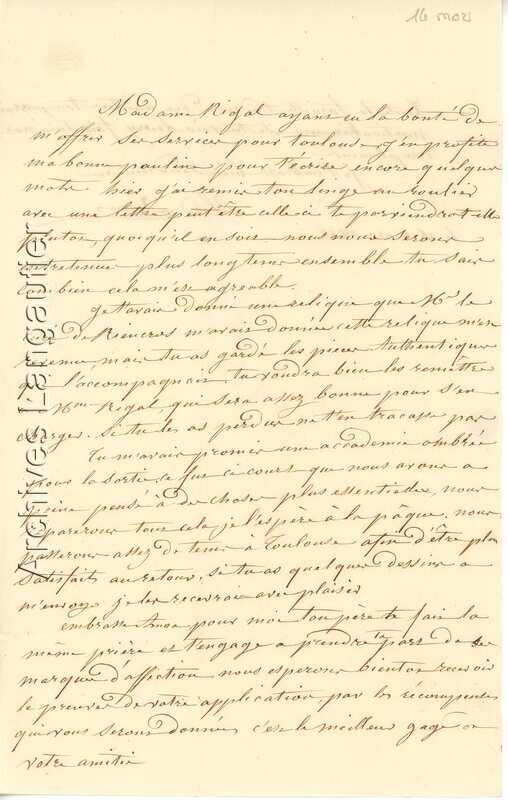 16 mars
Madame Rigal ayant eu la bonté de
m'offrir ses services pour toulouse j'en profite
ma bonne pauline pour t'écrire encore quelque
mots hier j'ai remis ton linge au roulier
avec une lettre peut être celle ci te parviendra t elle
plutot, quoiqu'il en soit nous nous serons
entretenue plus longtems ensemble tu sais
combien cela m'est agreable.
je t'avais donné une relique que Mr le
curé de Riencros m'avait donnée cette relique m'est
revenue, mais tu as gardé les pieces Authentiques
qui l'accompagnais, tu voudra bien les remettre
a Mme Rigal, qui sera assez bonne pour s'en
charger. si tu les as perdue ne t'en tracasse pas
Tu m'avais promis une academie ombrée
pour la sortie ce fut si court que nous avons a
peine pensé à de choses plus essentielles, nous
réparerons tous cela je l'espère à la pâque. nous
passerons assez de tems à Toulouse afin d'être plus
satisfaits au retour. si tu as quelques dessins a
m'envoyé je les recevrai avec plaisir
embrasse Anna pour moi ton père te fait la
même prière et t'engage a prendre ta part de ses
marques d'affection nous esperons bientot recevoir
le preuves de votre application, par les récompenses
qui vous serons données, c'est le meilleur gage de
votre amitié
Archives Langautier